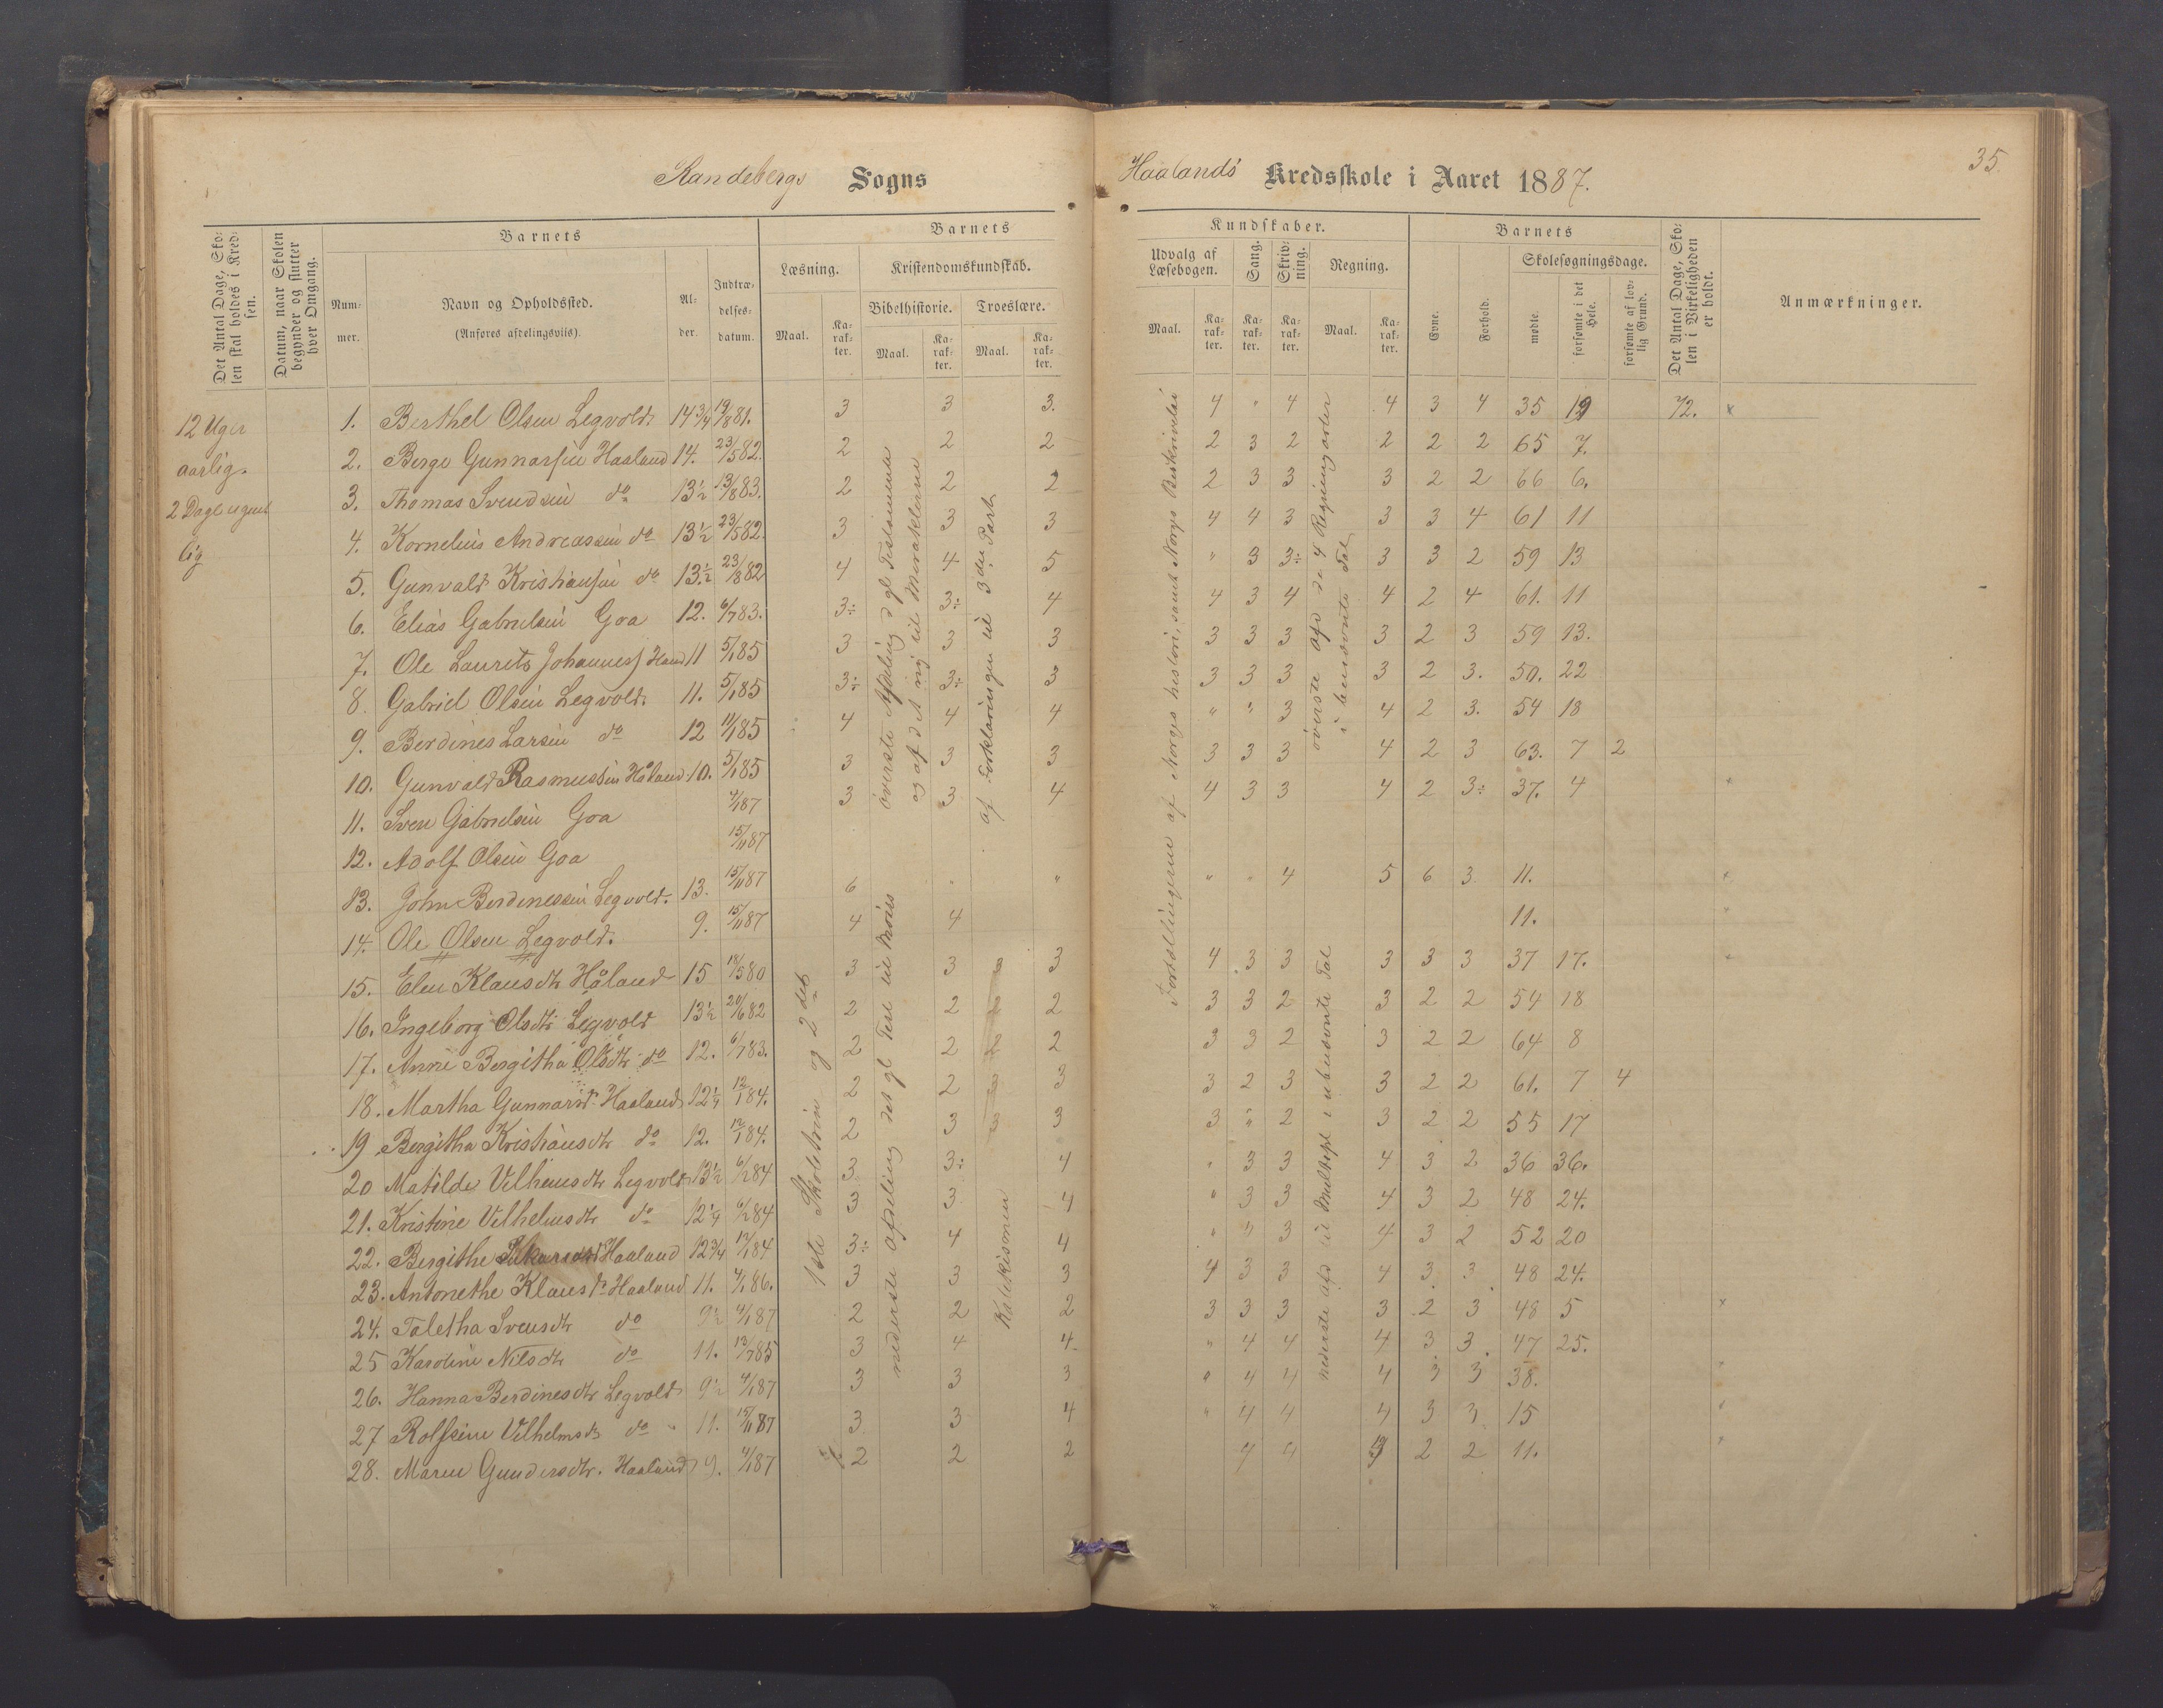 35.
Randebergs Sogns
Haalands Kredsskole i Aaret 1887.
Det Antal Dage, Sko-
len skal holdes i Kred-
sen.
Datum, naar Skolen
begynder og slutter
hver Omgang.
Barnets
Num-
mer.
Navn og Opholdssted.
(Anføres afdelingsviis).
Al-
der.
Indtræ-
delses-
datum.
Barnets
Læsning.
Maal.
Ka-
rak-
ter.
Kristendomskundskab.
Bibelhistorie.
Maal.
Ka-
rak-
ter.
Troeslære.
Maal.
Ka-
rak-
ter.
Kundskaber.
Udvalg af
Læsebogen.
Maal.
Ka-
rak-
ter.
Sang.
Ka-
rak-
ter.
Skriv-
ning.
Ka-
rak-
ter.
Regning.
Maal.
Ka-
rak-
ter.
Barnets
Evne.
Forhold.
Skolesøgningsdage.
mødte.
forsømte i det
Hele.
forsømte af lov-
lig Grund.
Det Antal Dage, Sko-
len i Virkeligheden
er holdt.
Anmærkninger.
12 Uger
aarlig.
2 Dage ugent
lig
1ste Skoletrin og 2det
øverste Afdeling d gl Testamente
og af d N nyt til Miraklerne
nederste afdeling det gl Test til Moses
af Forklaringen til 3die Part
Katekismen
Fortællingerne af Norges historie, samt Norges Beskrivelse
øverste afd de 4 Regningsarter
i benævnte Tal
nederste afd til Multipl i ubenævnte Tal
1. Berthel Olsen Legvold 14 3/4 19/8 81. 3 3 3. 4 " 4 4 3 4 35 19 72. x
2. Berge Gunnarsen Haaland 14. 23/5 82. 2 2 2 2 3 2 2 2 2 65 7.
3. Thomas Svendsen do 13 1/2 13/8 83. 2 2 2 2 3 3 3 2 2 66 6.
4. Kornelius Andreassen do 13 1/2 23/5 82. 3 3 3 4 4 3 3 3 4 61 11
5. Gunvald Kristiansen do 13 1/2 23/8 82 4 4 5 " 3 3÷ 3 3 2 59 13
6. Elias Gabrielsen Goa 12. 6/7 83. 3÷ 3÷ 4 4 3 4 4 2 4 61. 11
7. Ole Laurits Johannes Haaland 11 5/1 85 3 3 3 3 3 3 3 2 3 59 13.
8. Gabriel Olsen Legvold. 11. 5/1 85 3÷ 3÷ 3 3 3 3 3 2 3. 50. 22
9. Berdines Larsen do 12 11/1 85 4 4 4 " " 3 4 2 3. 54 18
10. Gunvald Rasmussen Håland 10. 5/1 85 3 3 3 3 3 3 4 2 3 63. 7 2
11. Sven Gabrielsen Goa 4/1 87 3 3 4 4 3 3 4 2 3÷ 37. 4 x
12. Adolf Olsen Goa 15/11 87
13. John Berdinessen Legvold. 13. 15/11 87 6 " " " " 4 5 6 3 11. x
14. Ole Olsen Legvold. 9. 15/11 87 4 4 11. x
15. Elen Klausdtr Håland 15 18/5 80 3 3 3 4 3 3 3 3 3 37 17. x
16. Ingeborg Olsdtr Legvold 13 1/2 20/6 82 2 2 2 3 3 2 3 2 2 54 18
17. Anne Bergitha Olsdtr do 12. 6/7 83. 2 2 2 3 3 2 3 2 2 64 8
18. Martha Gunnarsd. Haaland 12 1/4 12/1 84. 2 2 3 3 2 3 3 2 2 61. 7 4
19 Bergitha Kristiansdtr do 12. 12/1 84. 2 3 3 3 " 2 3 2 2 55 17
20 Matilde Vilhemsdtr Legvold 13 1/2 6/2 84 3 3÷ 4 " 3 3 4 3 2 36 36.
21. Kristine Vilhelmsdtr do 12 1/4 6/2 84 3 3 4 " 3 3 4 3 2 48 24.
22. Bergithe Haaland 12 3/4 12/1 84 3÷ 4 4 " " 3 4 3 2 52 20
23. Antonethe Klausdr Haaland 11. 4/1 86. 3 3 3 4 3 3 4 3 3 48 24.
24. Taletha Svensdtr do 9 1/2 4/1 87 2 2 2 3 3 3 3 2 3 48 5 x
25 Karoline Nilsdtr do 11. 12/7 85 3 4 4 " 4 4 4 3 3 47 25.
26. Hanna Berdinesdtr Legvold 9 1/2 4/1 87 3 3 3 " 4 4 4 3 3 38.
27 Rolfsine Vilhelmsdtr do 11. 15/11 87 3 3 4 " 4 4 4 3 3 15
28. Maren Gundersdtr. Haaland 9. 4/1 87 2 2 2 4 4 2 2 11.